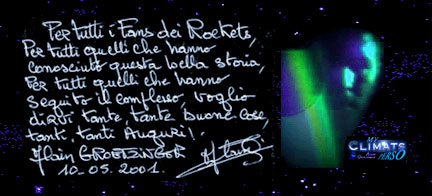 Per tutti i Fans dei Rockets,
Per tutti quelli che hanno
conosciuto questa bella storia,
Per tutti quelli che hanno
seguito il complesso, voglio
dirvi tante, tante buone cose,
tanti, tanti Auguri!
Alain GROETZINGER
10-05-2001.
MY
CLIMATS
PERSO